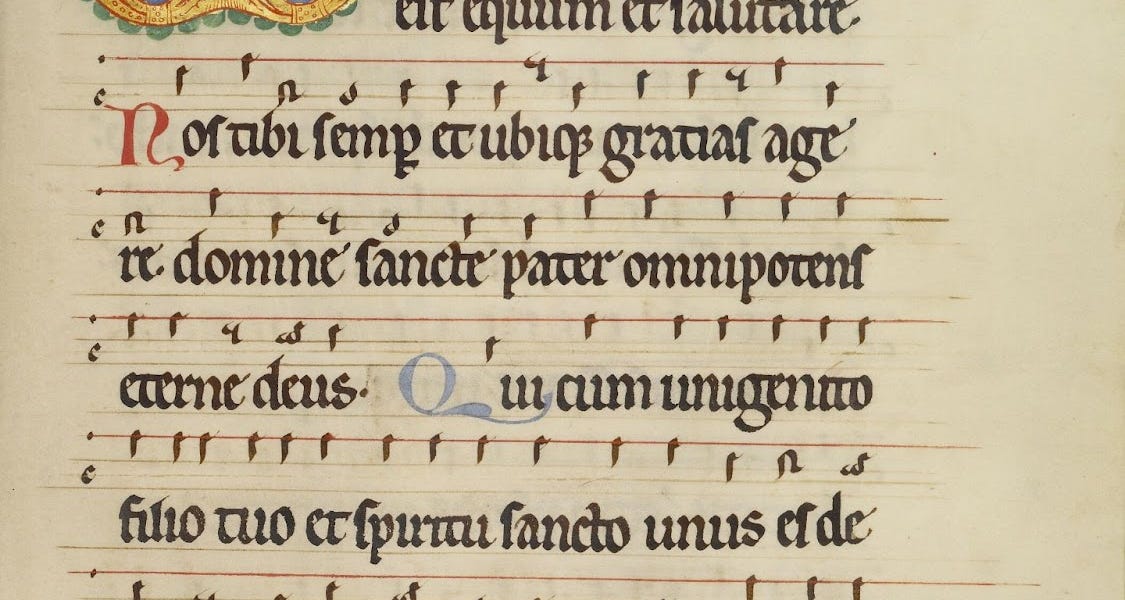 est equum et salutare.
Nos tibi semp et ubiq gratias age
re. domine sancte pater omnipotens
eterne deus. Qui cum unigenito
filio tuo et spiritu sancto unus es de